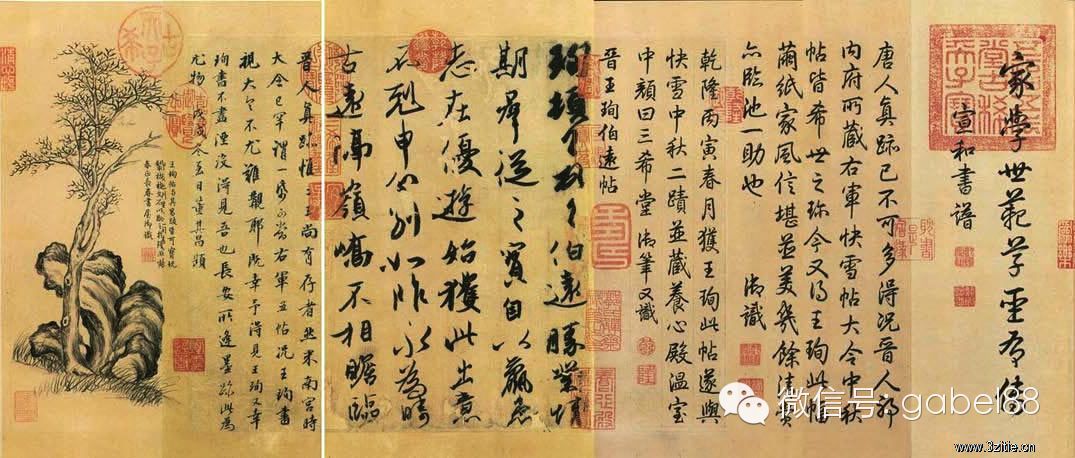 家學世範草聖有傳
宣和書譜
唐人真跡已不可多得況晉人耶
內府所藏右軍快雪帖大令中秋
帖皆希世之珍今又得王珣此幅
繭紙家風信堪並美幾餘清賞
亦臨池一助也 御識
乾隆丙寅春月獲王珣此帖遂與
快雪中秋二蹟並藏養心殿溫室
中顏曰三希堂 御筆又識
晉王珣伯遠帖
珣頓首頓首伯遠勝業情
期群從之寶自以羸患
志在優遊始獲此出意
不剋申分別如昨永為疇
古遠隔嶺嶠不相瞻臨
晉人真跡惟二王尚有存者然米南宮時
大令已罕謂一紙可當右軍五帖況王珣書
視大令不尤難覯耶既幸予得見王珣又幸
珣書不盡湮沒得見吾也長安所逢墨跡此為
尤物 戊戌冬至日董其昌題
王珣帖與其昌跋皆可寶玩
春正長春書屋御識
微信号: gabel88
www.3zitie.cn